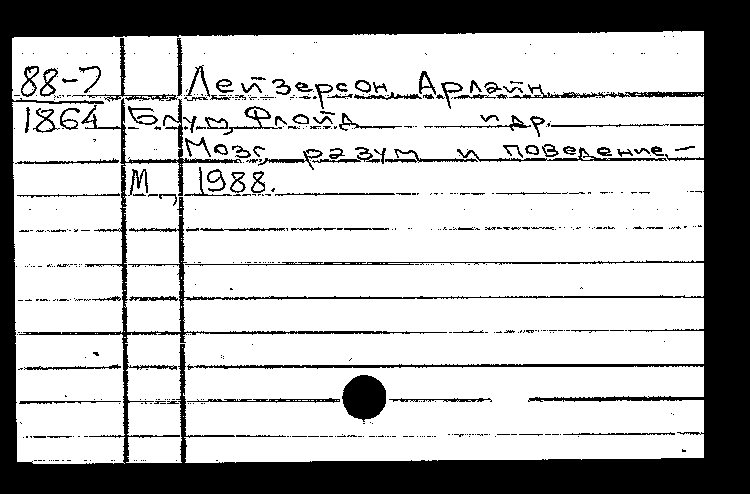 88-7 Лейзерсон, Арлайн
1864 Блум, Флойд и др.
Мозг, разум и поведение.-
М., 1988.